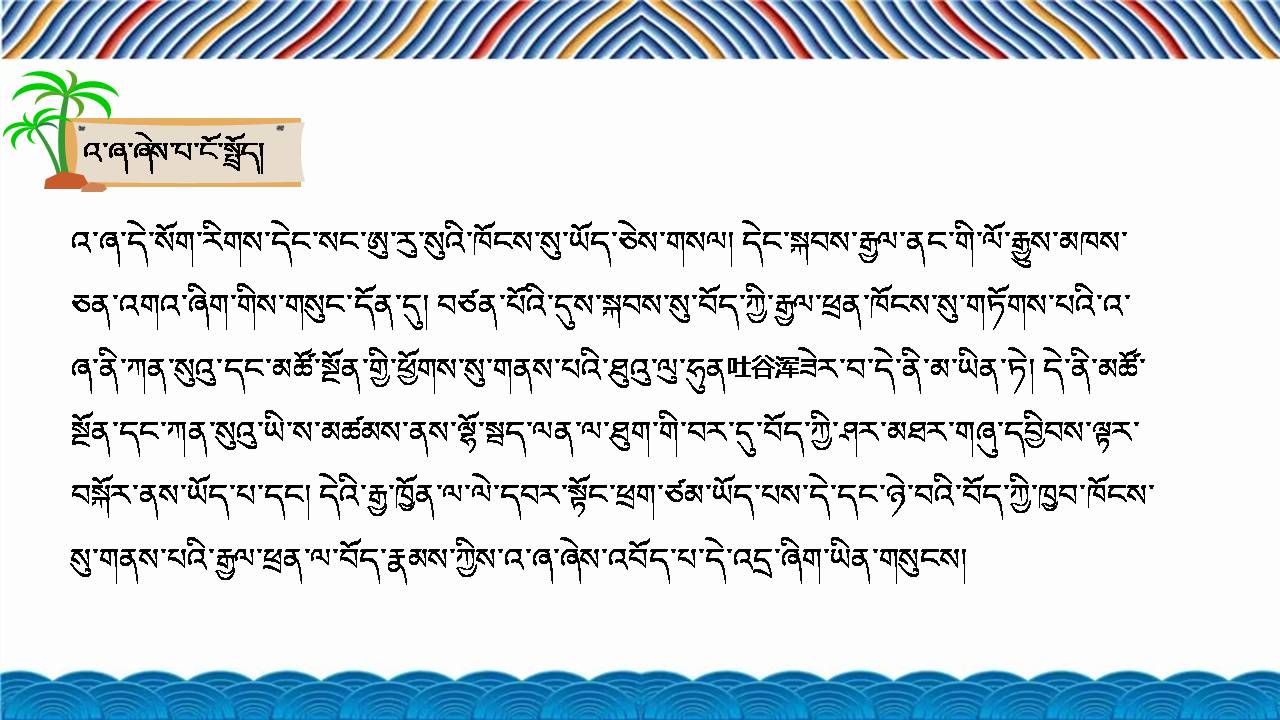 འ་ཞ་ཞེས་པ་ངོ་སྤྲོད།
འ་ཞ་དེ་སོག་རིགས་དེང་སང་ཨུ་རུ་སུའི་ཁོངས་སུ་ཡོད་ཅེས་གསལ། དེང་སྐབས་རྒྱལ་ནང་གི་ལོ་རྒྱུས་མཁས་
ཅན་འགའ་ཞིག་གིས་གསུང་དོན་དུ། བཙན་པོའི་དུས་སྐབས་སུ་བོད་ཀྱི་རྒྱལ་ཕྲན་ཁོངས་སུ་གཏོགས་པའི་འ་
ཞ་ནི་ཀན་སུའུ་དང་མཚོ་སྔོན་གྱི་ཕྱོགས་སུ་གནས་པའི་ཐུའུ་ལུ་ཧུན吐谷浑ཟེར་བ་དེ་ནི་མ་ཡིན་ཏེ། དེ་ནི་མཚོ་
སྔོན་དང་ཀན་སུའུ་ཡི་ས་མཚམས་ནས་ལྷོ་སྦད་ལན་ལ་ཐུག་གི་བར་དུ་བོད་ཀྱི་ཤར་མཐར་གཞུ་དབྱིབས་ལྟར་
བསྐོར་ནས་ཡོད་པ་དང། དེའི་རྒྱ་ཁྱོན་ལ་ལེ་དབར་སྟོང་ཕྲག་ཙམ་ཡོད་པས་དེ་དང་ཉེ་བའི་བོད་ཀྱི་ཁྱབ་ཁོངས་
སུ་གནས་པའི་རྒྱལ་ཕྲན་ལ་བོད་རྣམས་ཀྱིས་འ་ཞ་ཞེས་འབོད་པ་དེ་འདྲ་ཞིག་ཡིན་གསུངས།